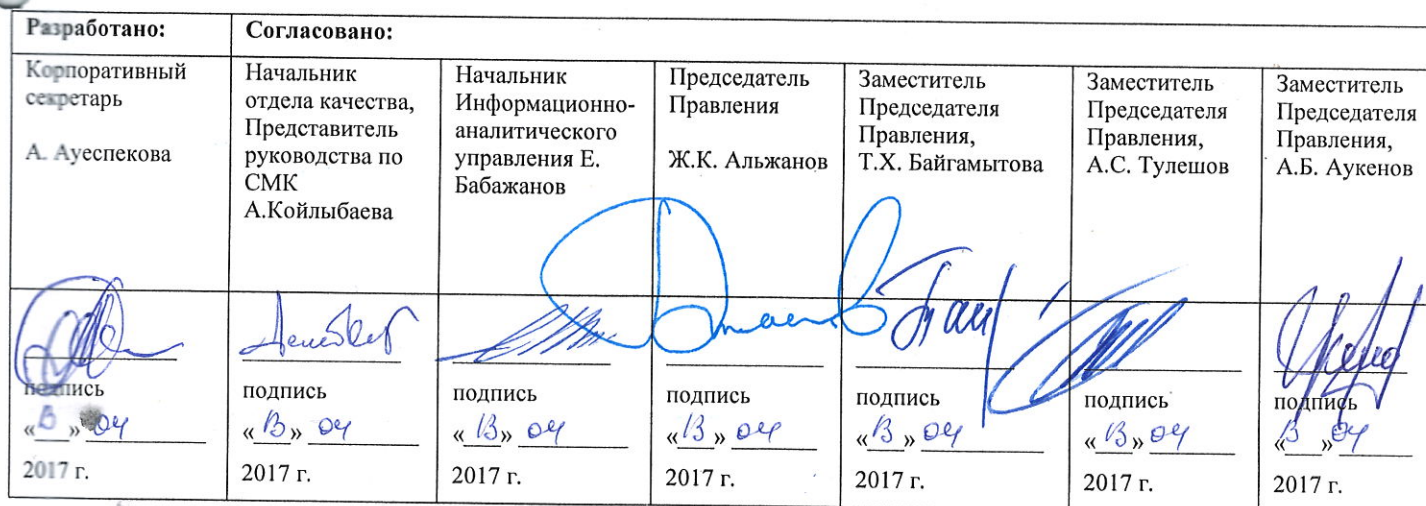 Разработано:
Согласовано:
Корпоративный
секретарь
А. Ауеспекова
Начальник
отдела качества,
Представитель
руководства по
СМК
А.Койлыбаева
Начальник
Информационно-
аналитического
управления Е.
Бабажанов
Председатель
Правления
Ж.К. Альжанов
Заместитель
Председателя
Правления,
Т.Х. Байгамытова
Заместитель
Председателя
Правления,
А.С. Тулешов
Заместитель
Председателя
Правления,
А.Б. Аукенов
подпись
«13» 04
2017 г.
подпись
«13» 04
2017 г.
подпись
«13» 04
2017 г.
подпись
«13» 04
2017 г.
подпись
«13» 04
2017 г.
подпись
«13» 04
2017 г.
подпись
«13» 04
2017 г.